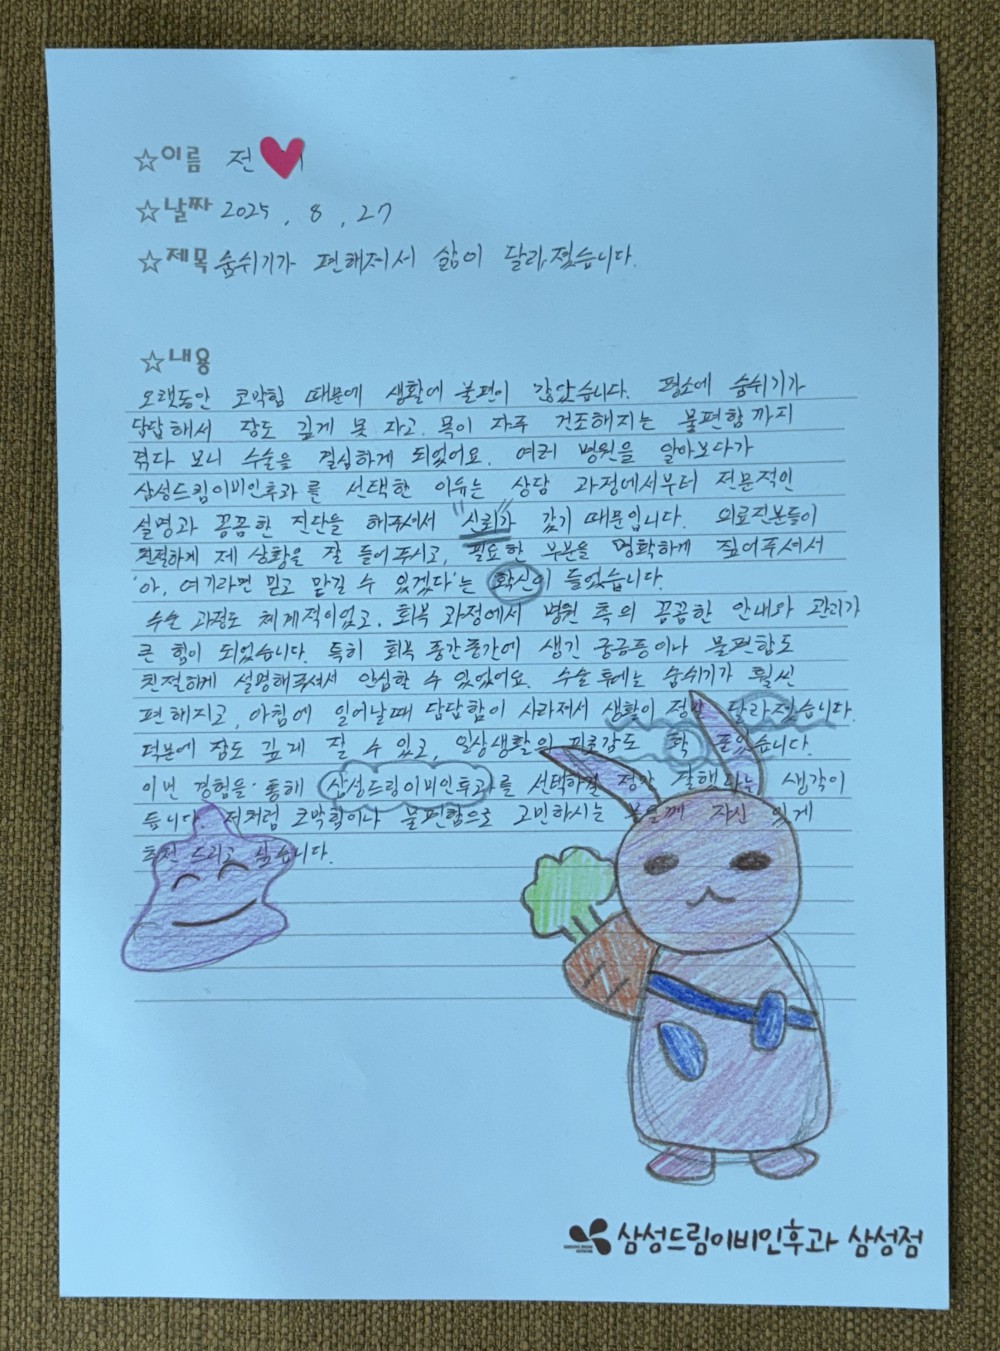 ☆이름 전
☆날짜 2025. 8. 27
☆제목 숨쉬기가 편해져서 삶이 달라졌습니다.
☆내용
오랫동안 코막힘 때문에 생활에 불편이 많았습니다. 평소에 숨쉬기가
답답해서 잠도 깊게 못 자고. 목이 자주 건조해지는 불편함까지
겪다 보니 수술을 결심하게 되었어요. 여러 병원을 알아보다가
삼성드림이비인후과를 선택한 이유는 상담 과정에서부터 전문적인
설명과 꼼꼼한 진단을 해주셔서 "신뢰"가 갔기 때문입니다. 의료진분들이
친절하게 제 상황을 잘 들어주시고, 필요한 부분을 명확하게 짚어주셔서
'아, 여기라면 믿고 맡길 수 있겠다'는 확신이 들었습니다.
수술 과정도 체계적이었고, 회복 과정에서 병원 측의 꼼꼼한 안내와 관리가
큰 힘이 되었습니다. 특히 회복 중간중간에 생긴 궁금증이나 불편함도
친절하게 설명해주셔서 안심할 수 있었어요. 수술 후에는 숨쉬기가 훨씬
편해지고, 아침에 일어날때 답답함이 사라져서 생활이 정말 달라졌습니다.
덕분에 잠도 깊게 잘 수 있고, 일상생활의 피로감도 확 줄었습니다.
이번 경험을 통해 삼성드림이비인후과를 선택하길 정말 잘했다는 생각이
듭니다. 저처럼 코막힘이나 불편함으로 고민하시는 분들께 자신 있게
추천 드리고 싶습니다.
삼성드림이비인후과 삼성점